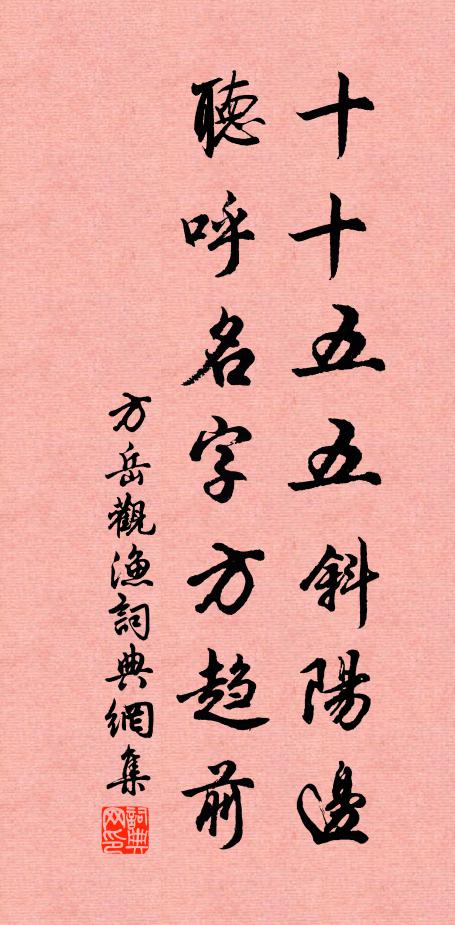 十十五五斜陽邊
聽呼名字方趨前
方岳觀漁詞典網集
詞典
网印